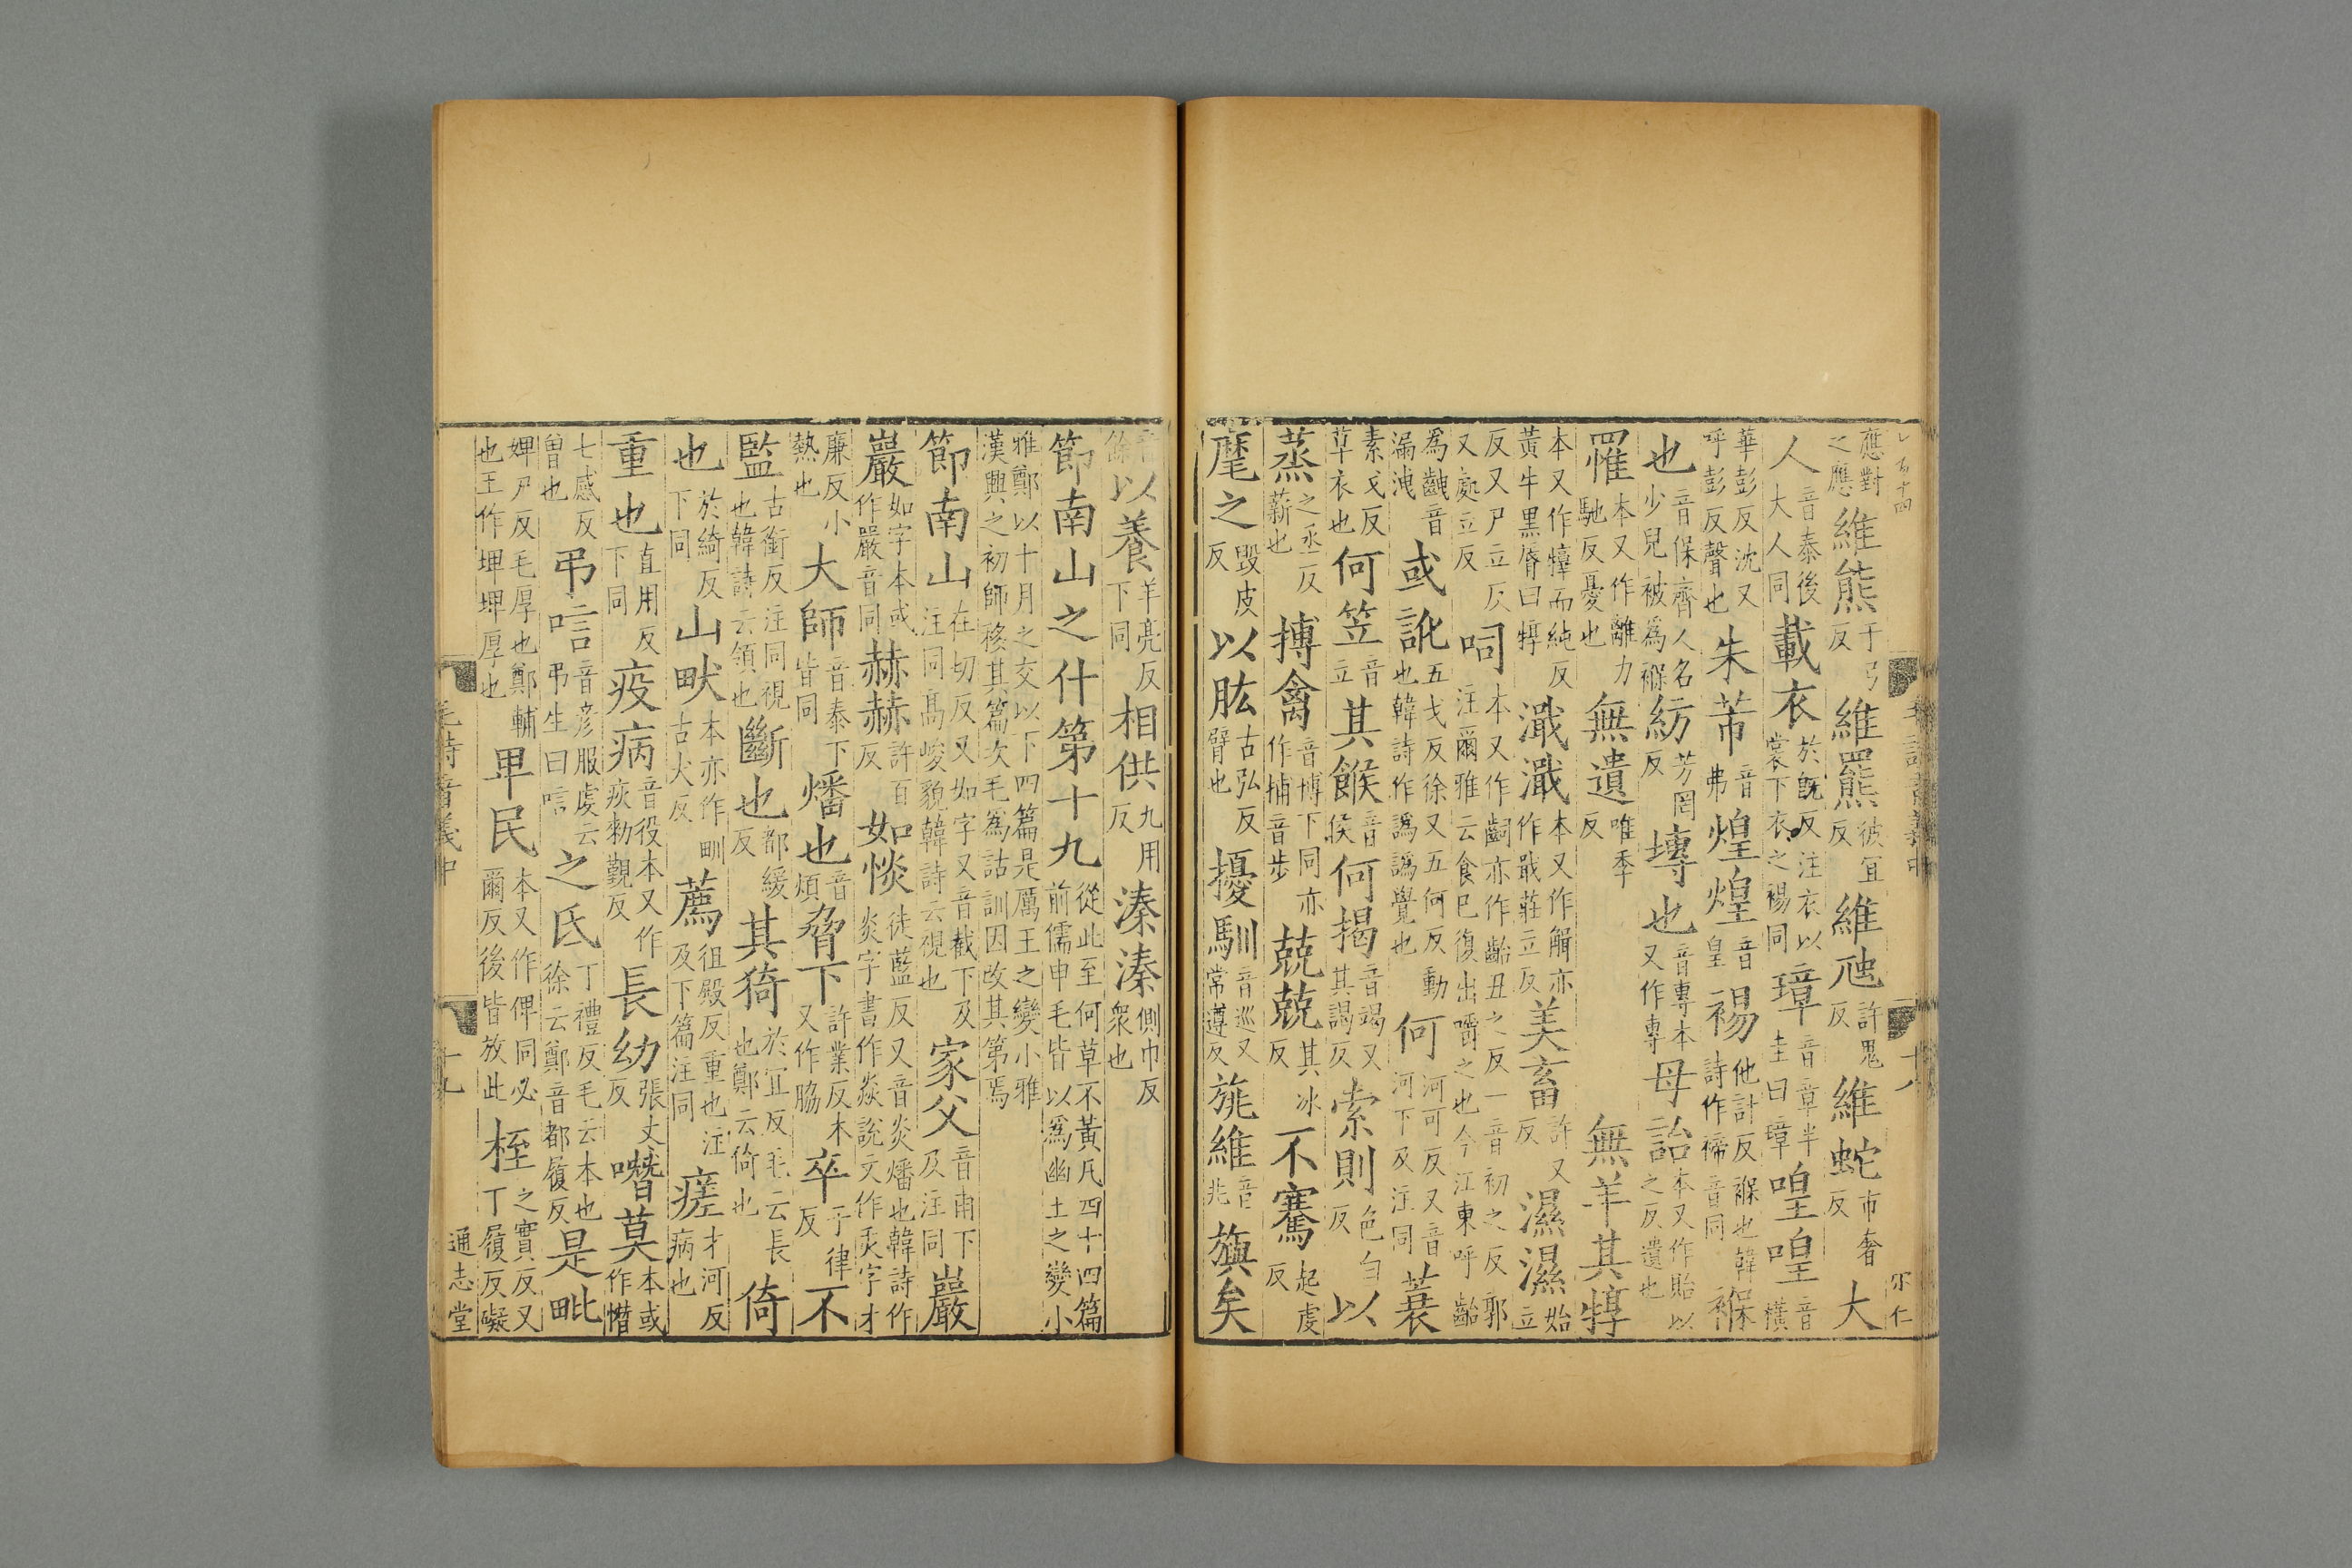 應對之應維熊于弓反維羆彼宜反維虺許鬼反維蛇市奢反大
人音泰後大人同載衣於旣反注衣以裳下衣之裼同璋音章半圭曰璋喤喤音橫
華彭反沈又呼彭反聲也朱芾音弗煌煌音皇裼他計反褓也韓詩作褅音同褓
也音保齊人名少兒被爲褓紡芳罔反塼也音專本又作專母詒本又作貽以之反遺也
罹本又作離力馳反憂也無遺唯季反無羊其犉
本又作㹈而純反黃牛黑脣曰犉濈濈本又作觧亦作戢莊立反美畜許又反濕濕始立
反又尸立反又處立反呞本又作齝亦作齝丑之反一音初之反郭注爾雅云食已復出嚼之也今江東呼齝
爲齥音漏洩或訛五戈反徐又五何反動也韓詩作譌譌覺也何河可反又音河下及注同蓑
素戈反草衣也何笠音立其餱音侯何揭音竭又其謁反索則色白反以
蒸之丞反薪也搏禽音博下同亦作捕音步兢兢其冰反不騫起虔反
麾之毀皮反以肱古弘反臂也擾馴音巡又常遵反旐維音兆旟矣
以養羊亮反下同相供九用反溱溱側巾反衆也
節南山之什第十九從此至何草不黃凡四十四篇前儒申毛皆以爲幽王之變小
雅鄭以十月之交以下四篇是厲王之變小雅漢興之初師移其篇次毛爲詁訓因改其第焉
節南山在切反又如字又音截下及注同高峻貌韓詩云視也家父音甫下及注同巖
巖如字本或作嚴音同赫赫許百反如惔徒藍反又音炎燔也韓詩作炎字書作焱說文作㶣字才
廉反小熱也大師音泰下皆同燔也音煩脅下許業反本又作脇卒子律反不
監古銜反注同視也韓詩云領也斷也都緩反其猗於宜反毛云長也鄭云倚也倚
也於綺反下同山畎本亦作甽古犬反薦徂殿反重也注及下篇注同瘥才河反病也
重也直用反下同疫病音役本又作疢勑覲反長幼張丈反噆莫本或作憯
七感反曾也弔唁音彥服虔云弔生曰唁之氐丁禮反毛云本也徐云鄭音都履反是毗
婢尸反毛厚也鄭輔也王作埤埤厚也卑民本又作俾同必爾反後皆放此桎之實反又丁履反礙
毛詩音義中
十九
通志堂